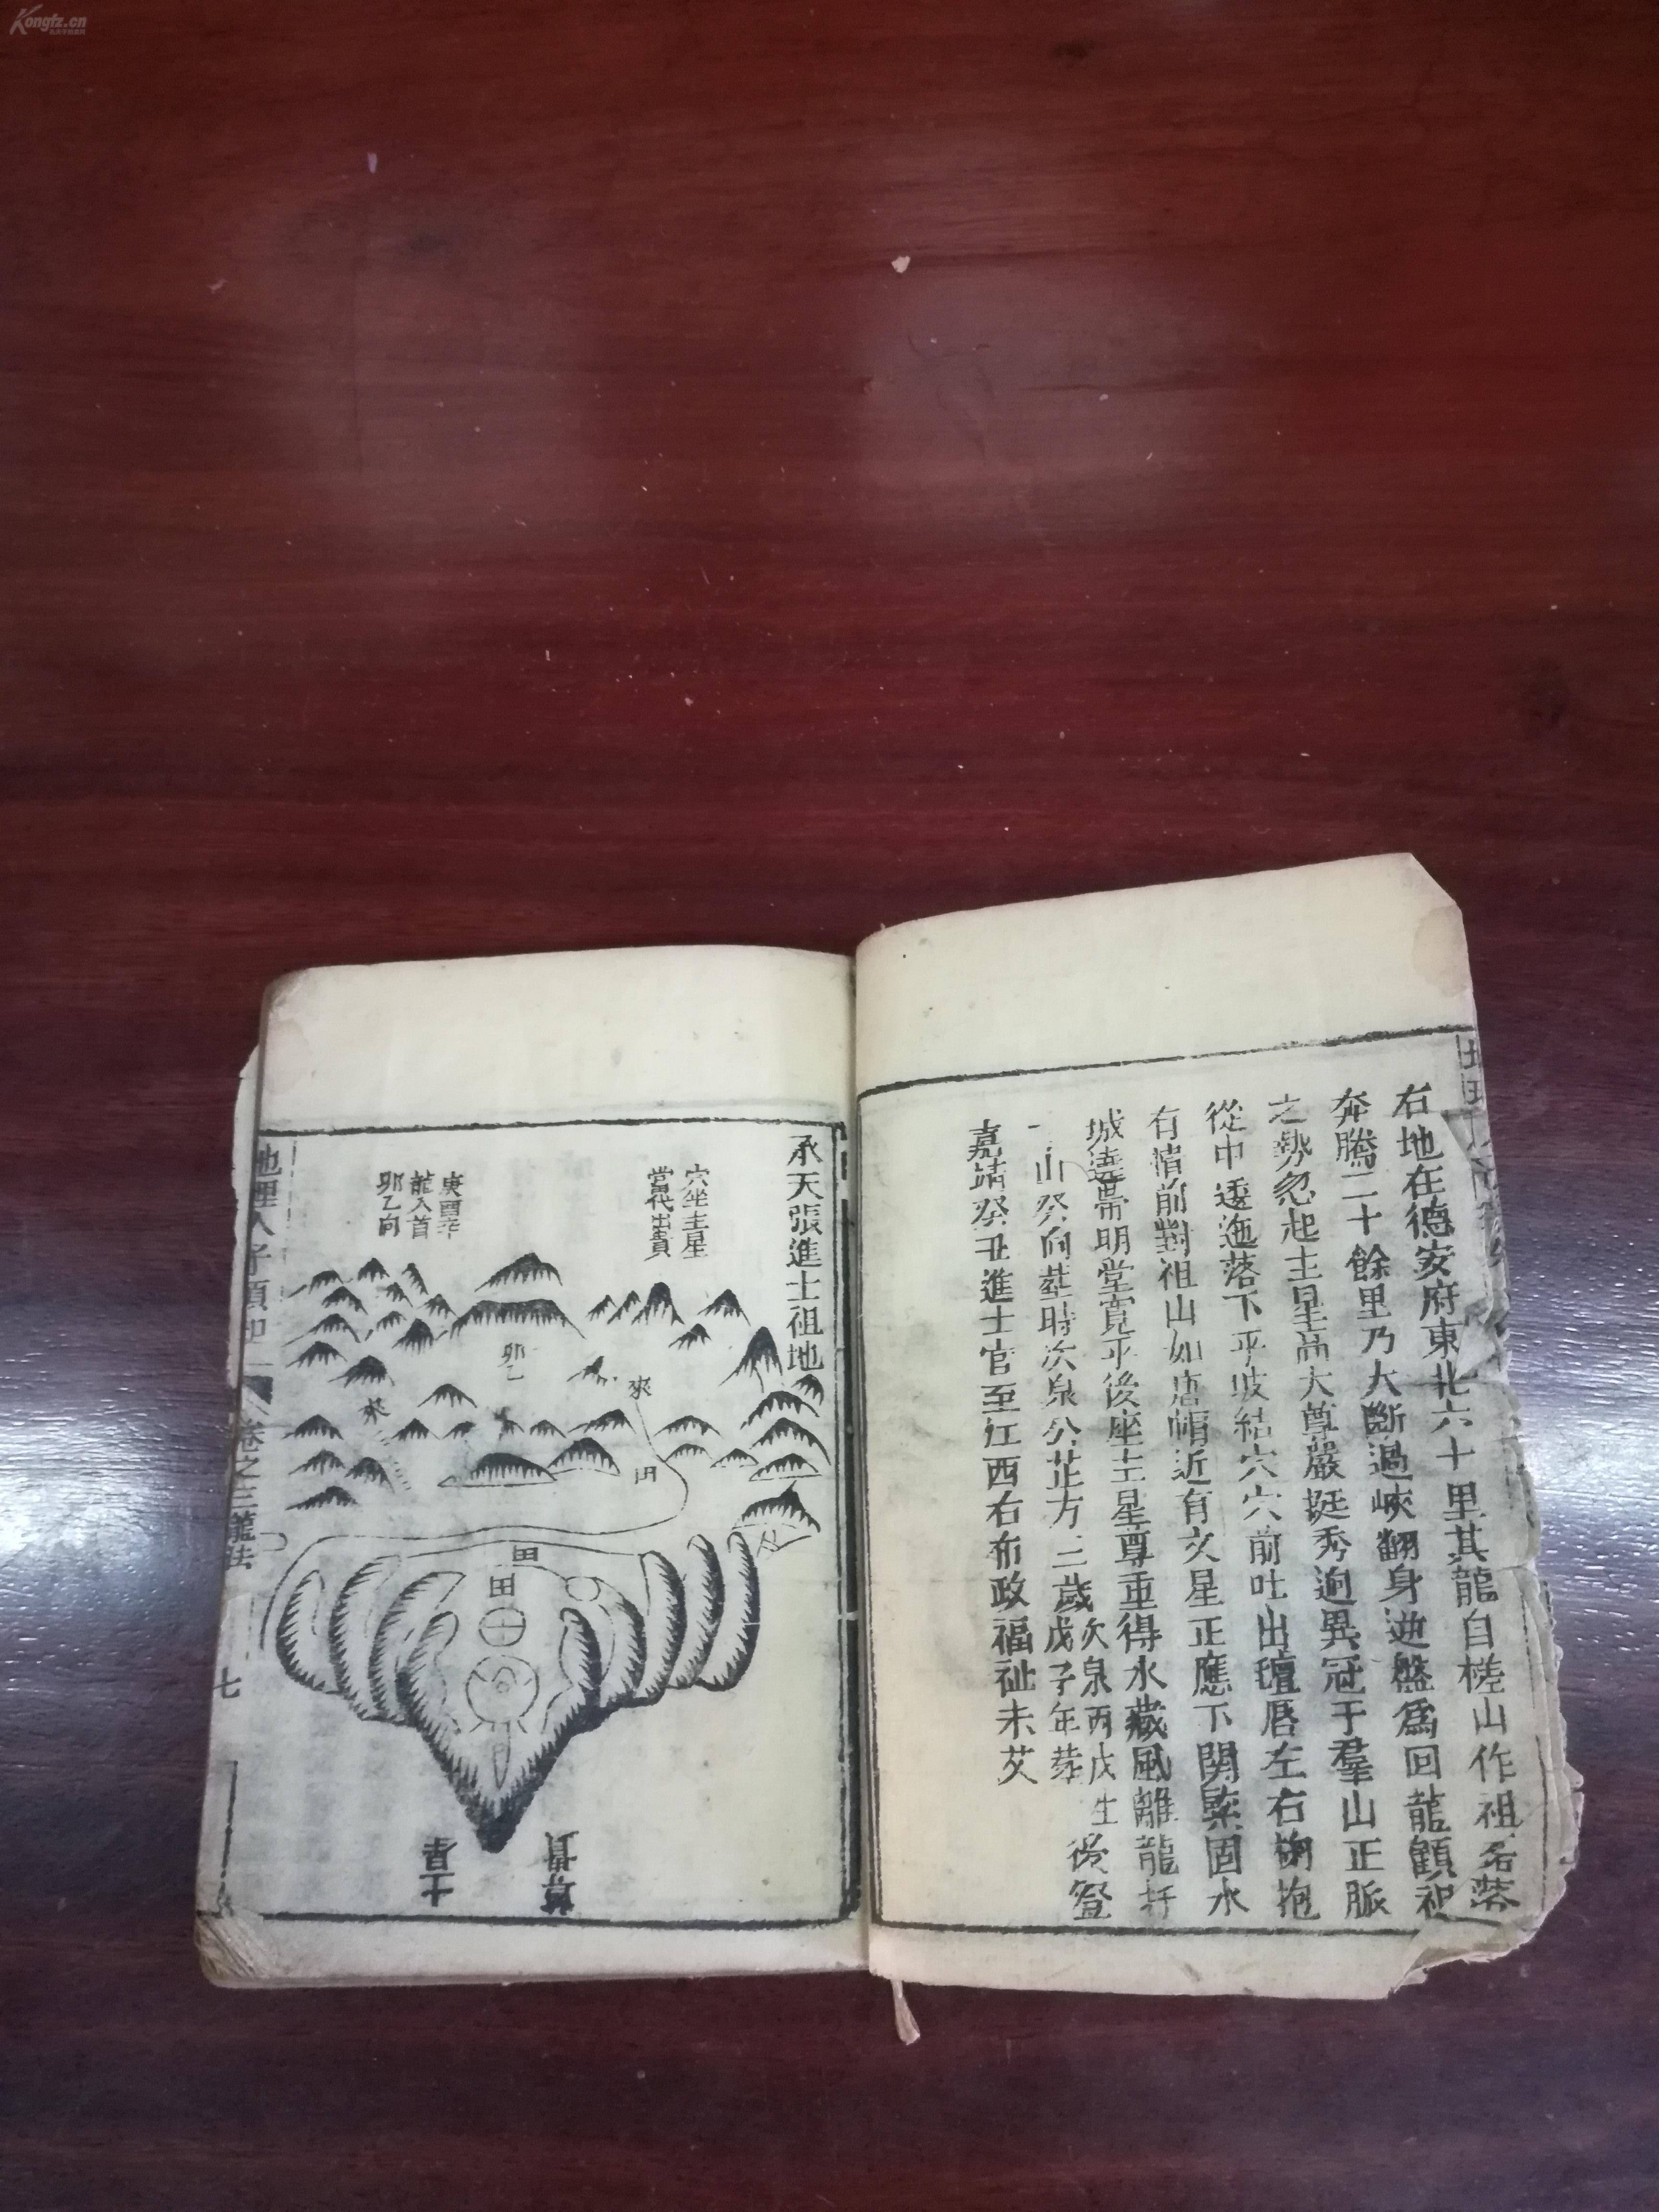 右地在德安府東北六十里其龍自槎山作祖名落
奔騰二十餘里乃大斷過峽翻身逆盤為回龍顧祖
之勢忽起土星高大尊嚴挺秀迥異冠于羣山正脈
從中逶迤落下平坡結穴穴前吐出氊唇左右拥抱
有情前對祖山如唐帽近有文星正應下関緊固水
城遶帶明堂寬平後座土星尊重得水藏風離龍扦
山癸向葬時次泉公芷方三歲
次泉丙戌生
戊子年葬
後登
嘉靖癸丑進士官至江西右布政福祉未艾
承天張進士祖地
穴坐土星
當代出貴
庚酉辛
龍入首
卯乙向
卯乙
來
來
田
田
土星
尊貴
地理人子須知
卷之三龍法
七
Kongfz.cn